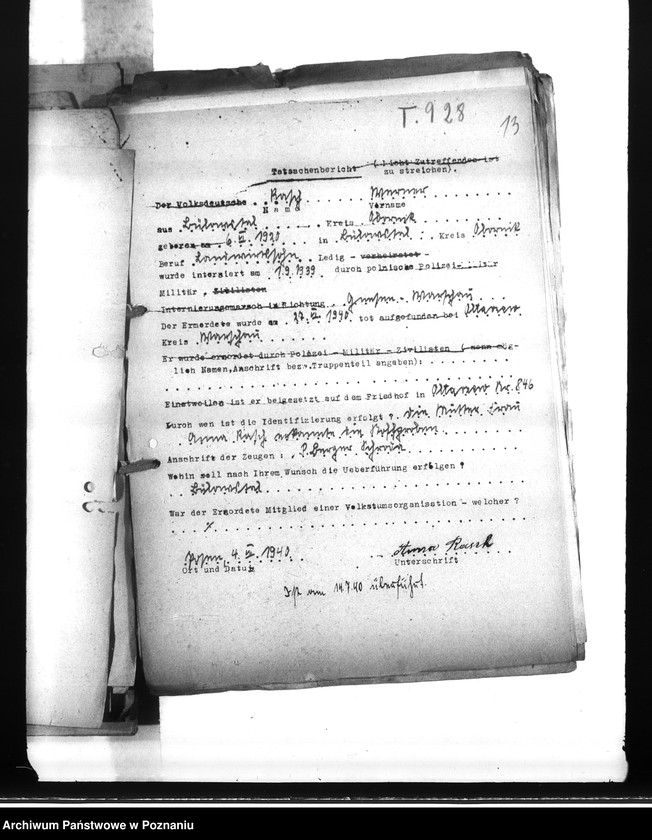 T. 928
13
Tatsachenbericht ( ) icht Zutreffendes ist
zu streichen).
Der Volksdeutsche . . Rasch . . . Werner . . .
N a m e Vorname
aus . Bülowstal . . . . Kreis Obornik . . .
geboren am . 6. . 1920 . . in . Bülowstal . . Kreis Obornik
Beruf . Landwirtssohn . Ledig - verheiratet -
wurde interniert am . 1.9.1939 . durch polnische Polizei- Militär
Militär , Zivilisten
Internierungsmarsch in Richtung . Gnesen - Warschau . . .
Der Ermordete wurde am . 27. . 1940 . tot aufgefunden bei
Kreis . Warschau . . .
Er wurde ermordet durch Polizei - Militär - Zivilisten ( wenn mög-
lich Namen, Anschrift bezw. Truppenteil angeben):
Einstweilen ist er beigesetzt auf dem Friedhof in Nr. 846
Durch wen ist die Identifizierung erfolgt ? Die Mutter Frau
Anna Rasch erkannte die
Anschrift der Zeugen :
Wohin soll nach Ihrem Wunsch die Ueberführung erfolgen ?
. . Bülowstal . . .
War der Ermordete Mitglied einer Volkstumsorganisation - welcher ?
Posen, 4. . 1940. Anna Rasch
Ort und Datum Unterschrift
Ist am 14.7.40 überführt.
Archiwum Państwowe w Poznaniu